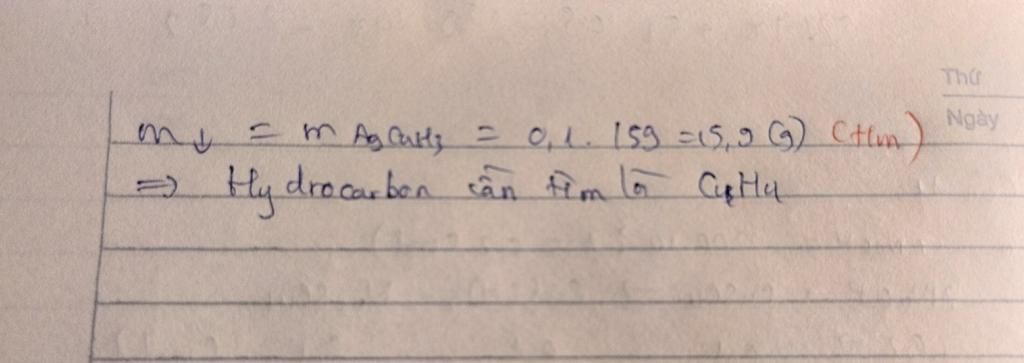 Thứ
Ngày
m↓ = m AgC4H3 = 0,1. 159 = 15,9 (g) (t/m)
⇒ Hydrocarbon cần tìm là C4H4